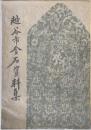 越谷市金石資料集